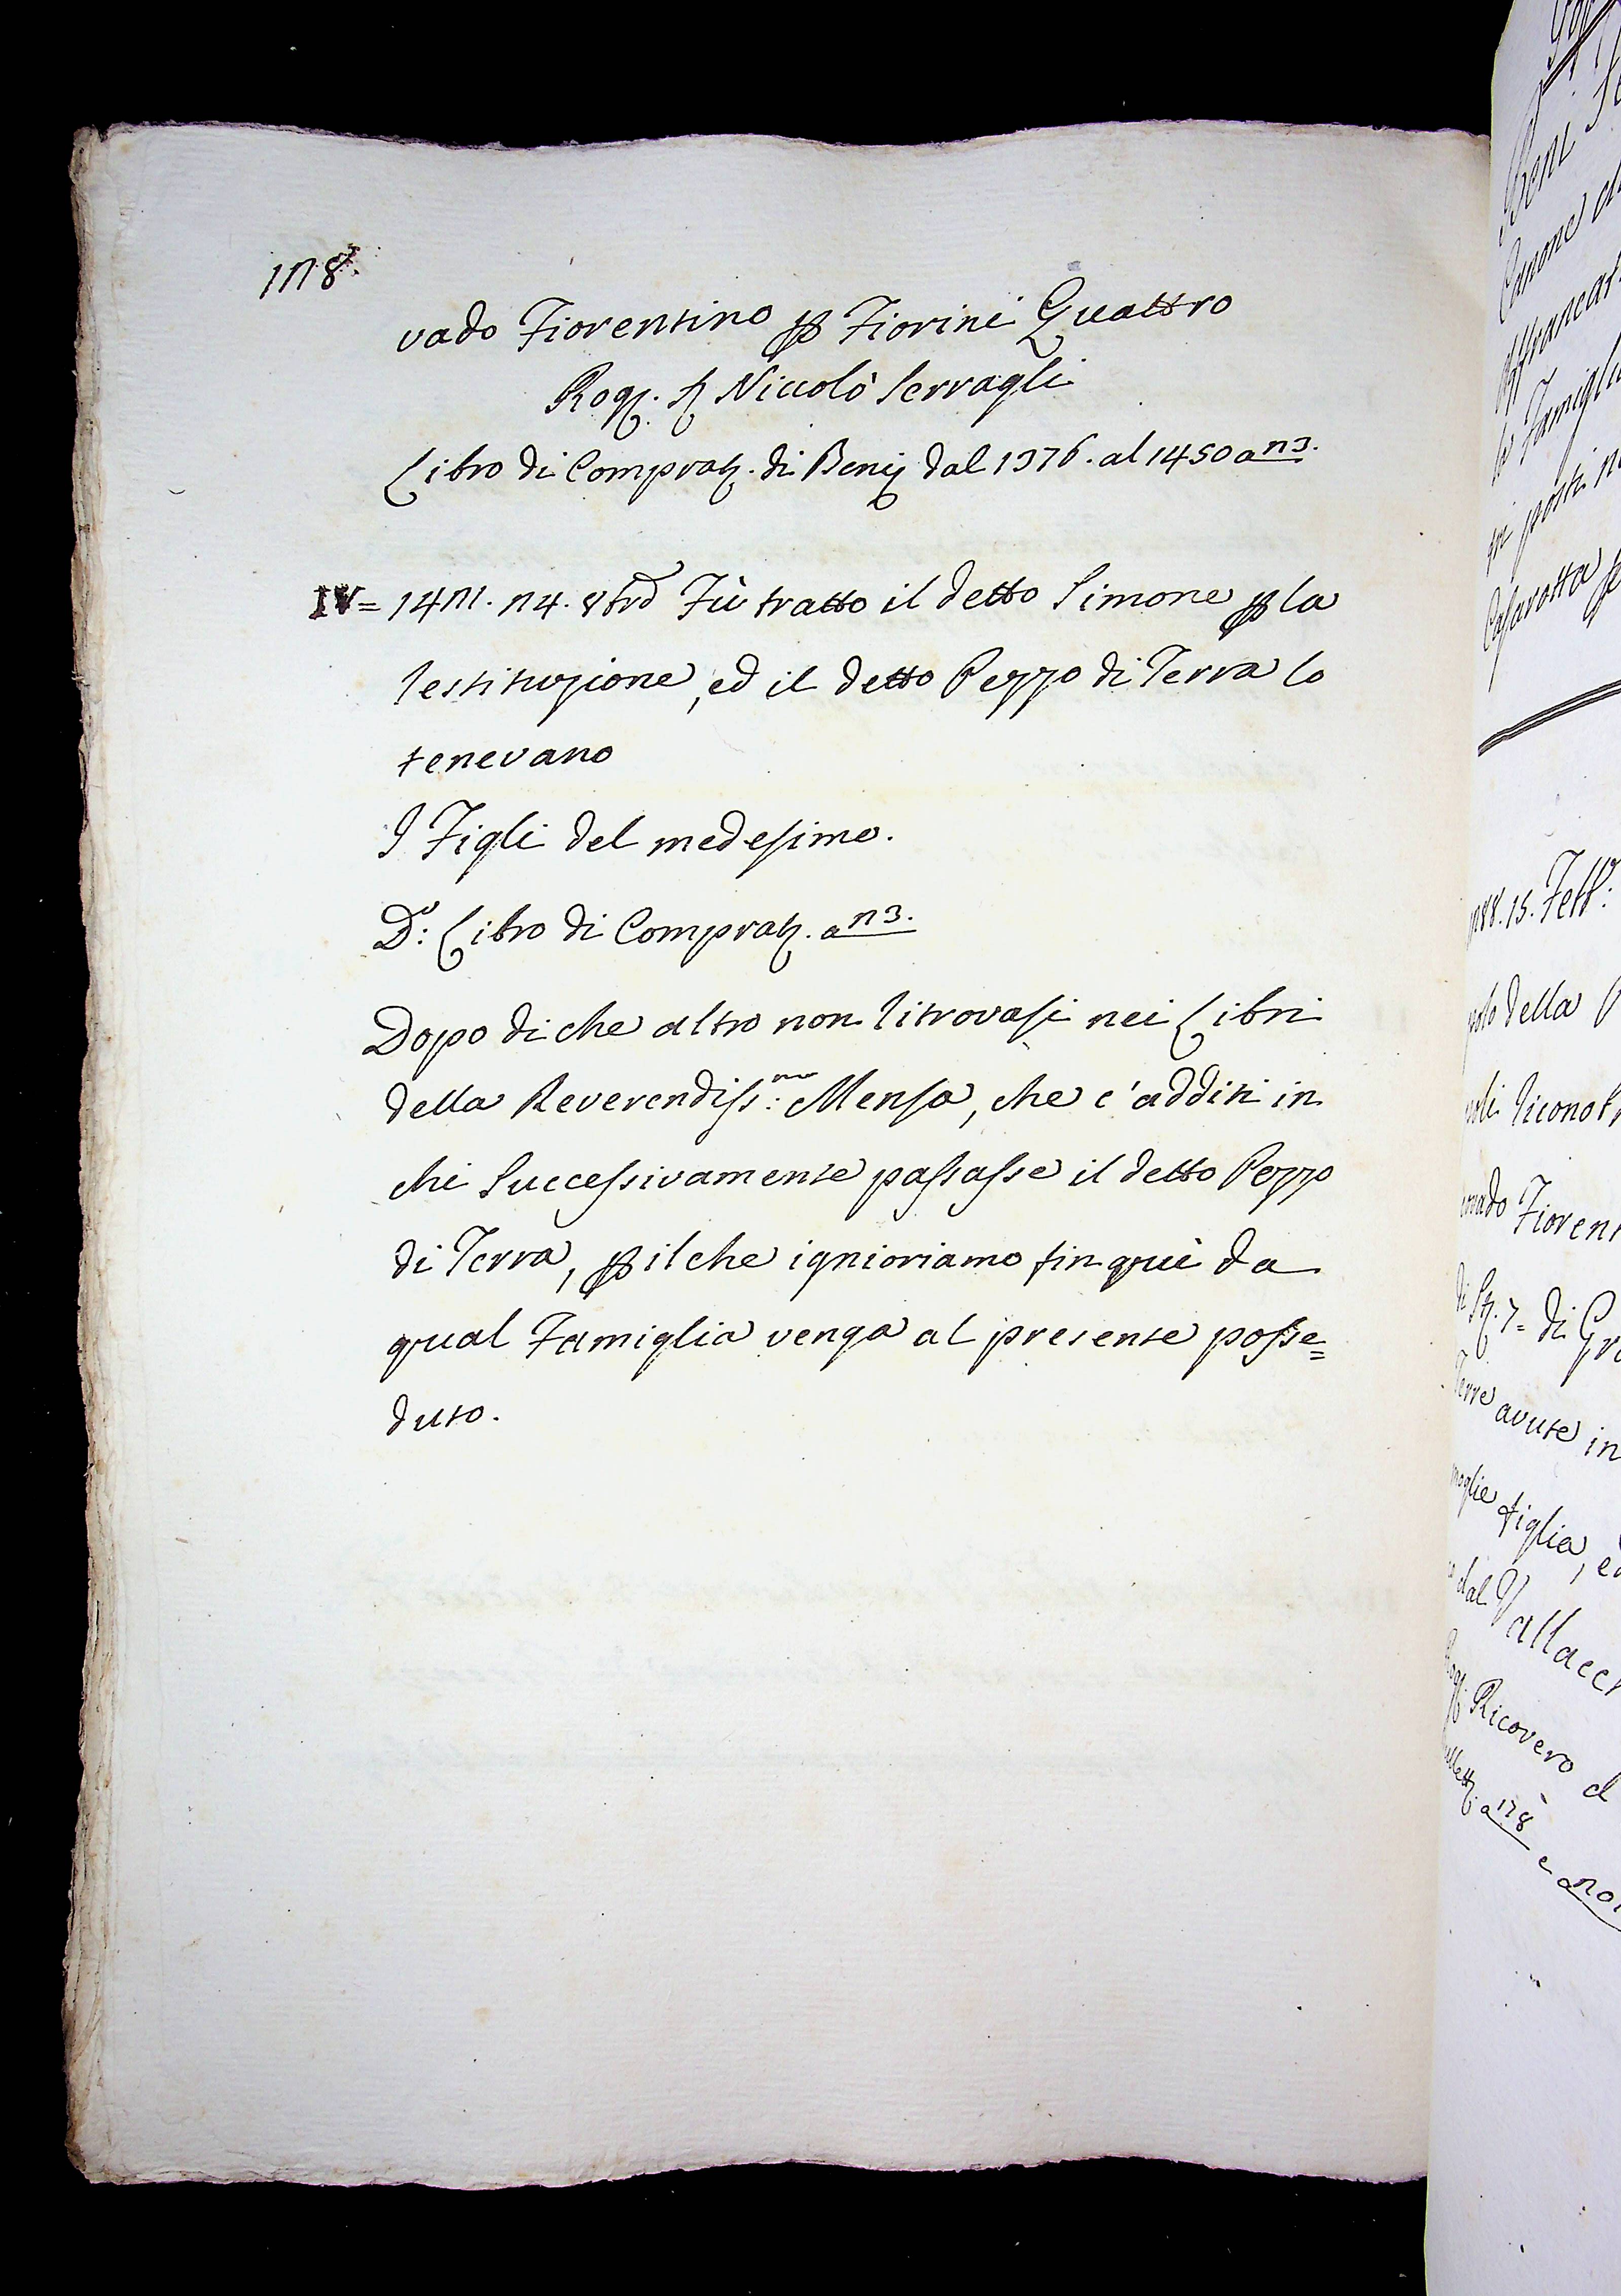 128.
vado Fiorentino p Fiorini Quattro
Rog. S. Niccolò Serragli
Libro di Comprat. di Benij dal 1376. al 1450 a 23.
IV= 1421. 24. 8bre Fù tratto il detto Simone p la
restituzione, ed il detto Pezzo di Terra lo
tenevano
I Figli del medesimo.
Do: Libro di Comprat. a 23.
Dopo di che altro non ritrovasi nei Libri
della Reverendiss:ma Mensa, che c'additi in
chi successivamente passasse il detto Pezzo
di Terra, p il che ignioriamo fin quì da
qual Famiglia venga al presente posse=
duto.
Beni
Canone
Famigli
posti
1288. 15. Febb:
della
Fioren
di
Terre avute in
moglie figlia,
dal Vallacch
Ricovero d
a 128 e